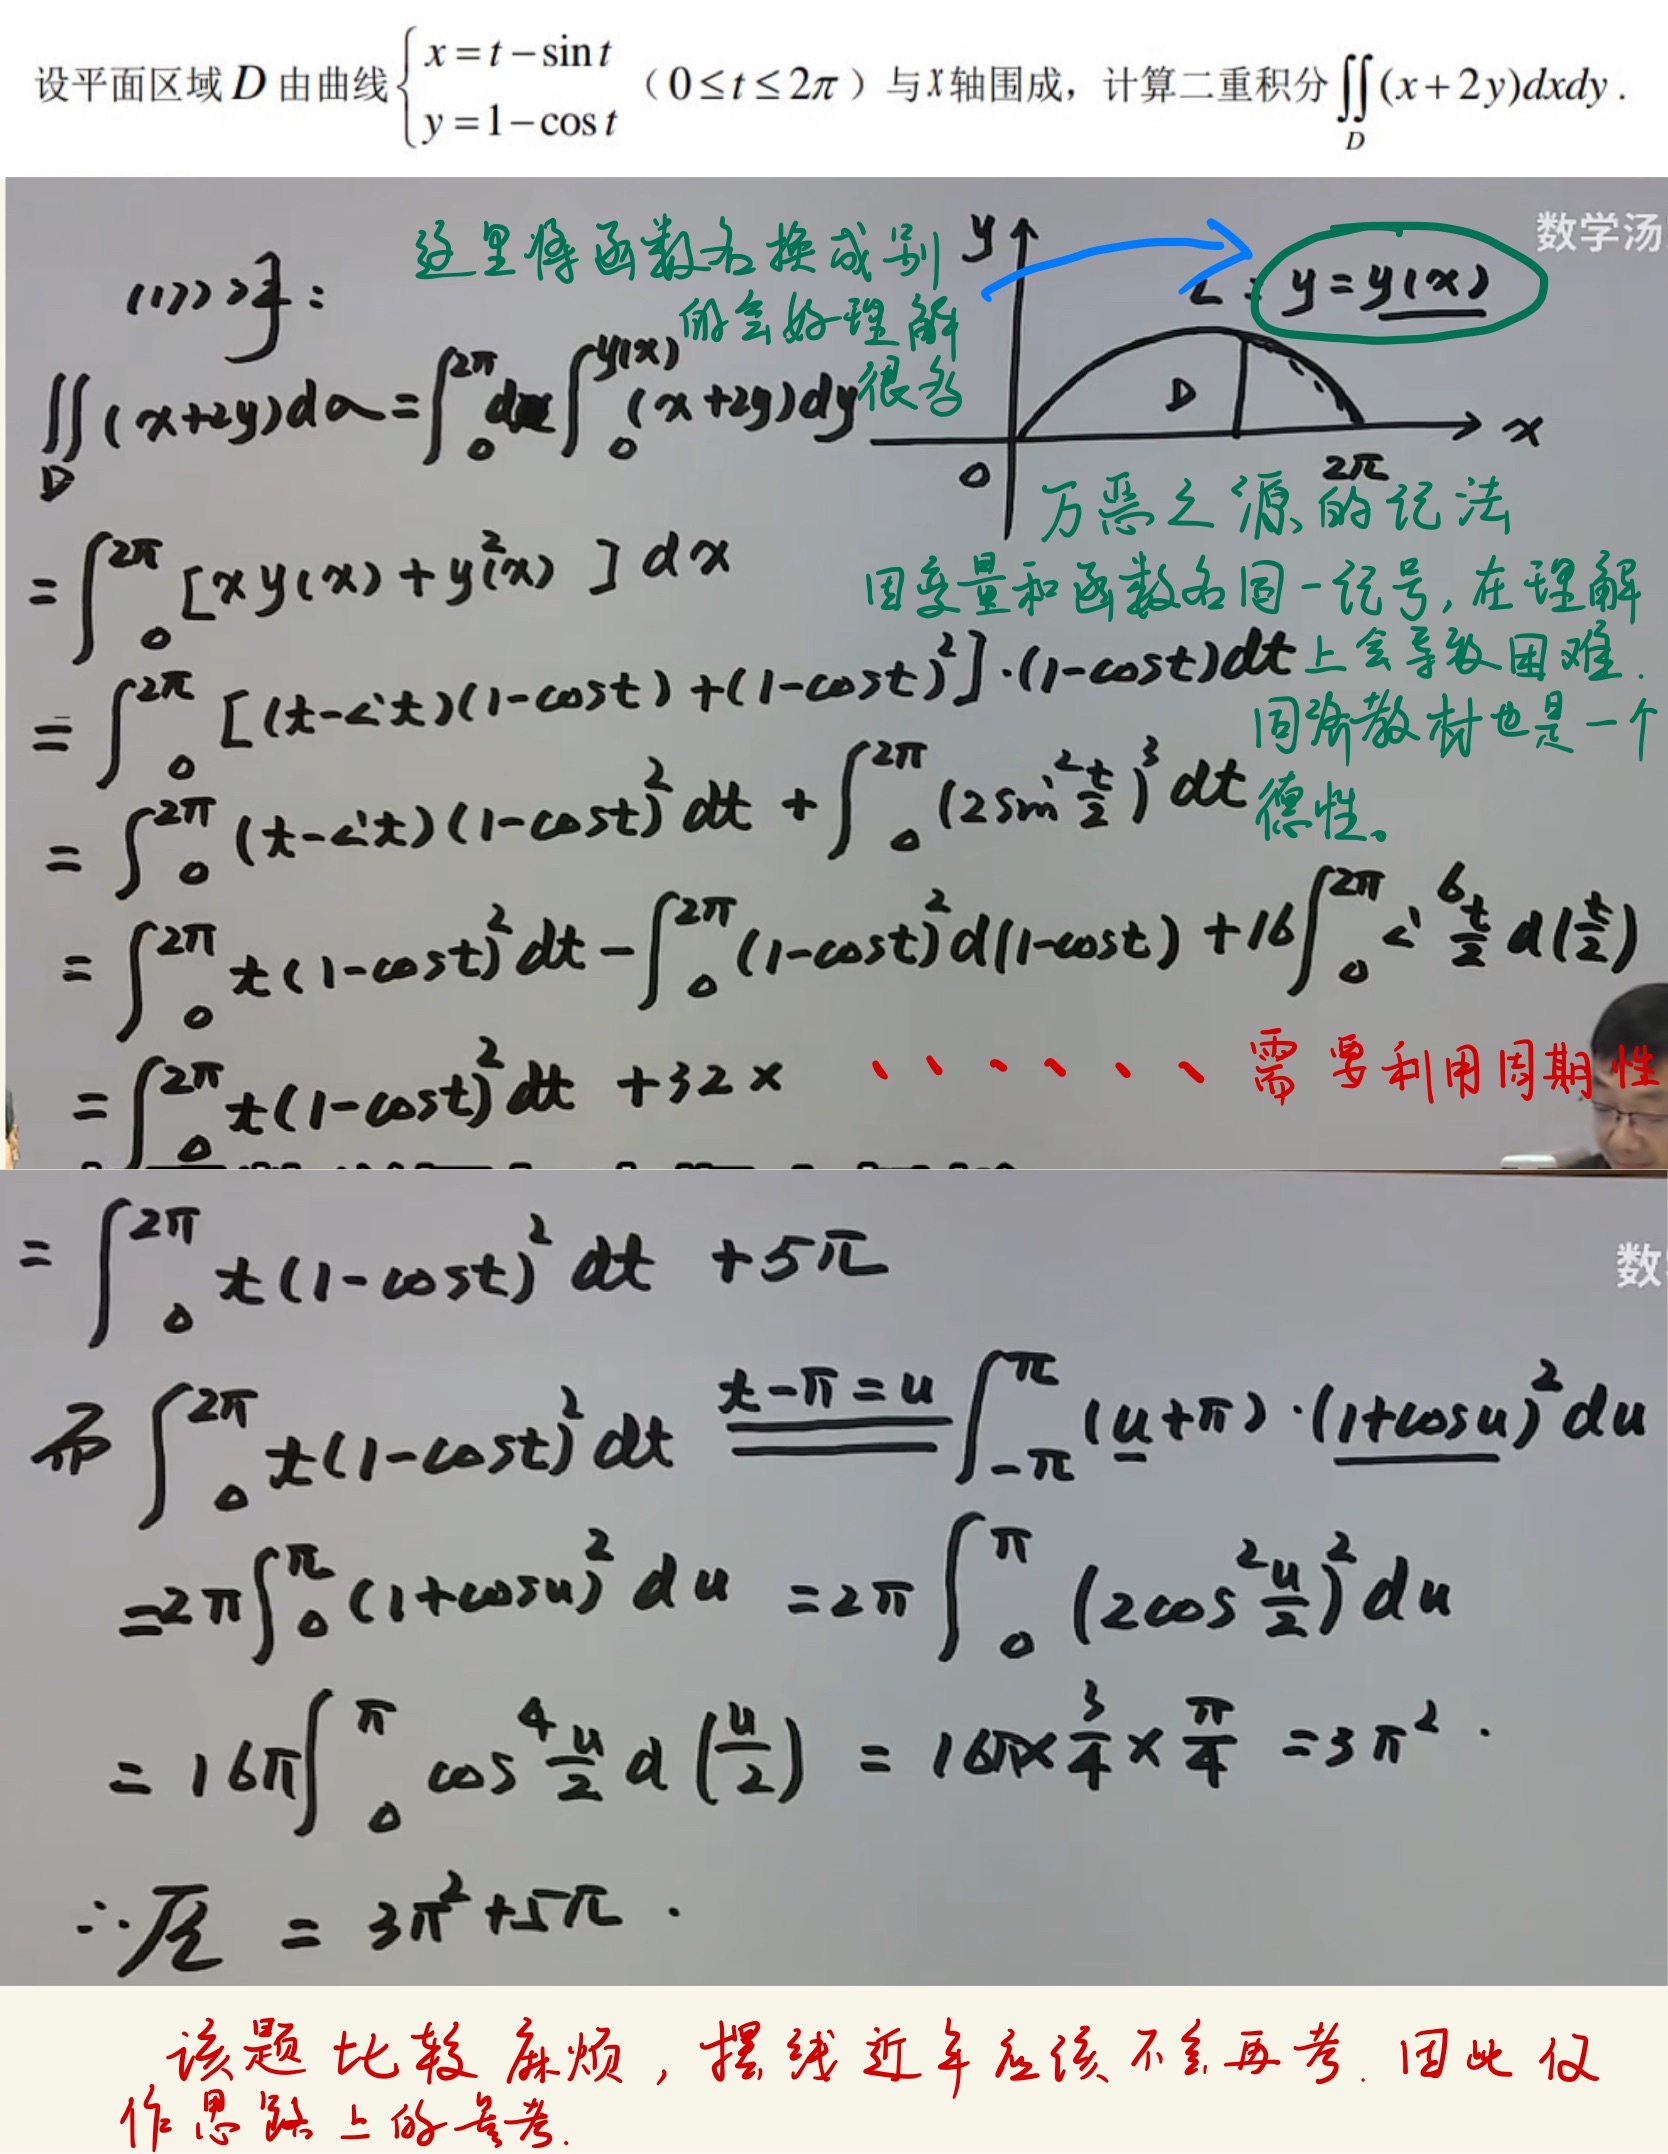 设平面区域 D 由曲线 { x = t − sin t , y = 1 − cos t （0 ≤ t ≤ 2π）与 x 轴围成，计算二重积分 ∬_D (x+2y)dxdy .
数学汤
这里将函数名换成别
的会好理解
很多
L : y = y(x)
y
D
0
2π
x
∬_D (x+2y)dσ = ∫_0^{2π} dx ∫_0^{y(x)} (x+2y)dy
万恶之源的记法
因变量和函数名同一记号，在理解
上会导致困难.
同济教材也是一个
德性。
= ∫_0^{2π} [xy(x) + y²(x)] dx
= ∫_0^{2π} [(t-sin t)(1-cost) + (1-cost)²]·(1-cost)dt
= ∫_0^{2π} (t-sin t)(1-cost)² dt + ∫_0^{2π} (2sin² t/2)³ dt
= ∫_0^{2π} t(1-cost)² dt - ∫_0^{2π} (1-cost)² d(1-cost) + 16∫_0^{2π} sin⁶ t/2 d(t/2)
= ∫_0^{2π} t(1-cost)² dt + 32 ×
、、、、、、需要利用周期性
= ∫_0^{2π} t(1-cost)² dt + 5π
数
而 ∫_0^{2π} t(1-cost)² dt t-π=u ∫_{-π}^{π} (u+π)·(1+cosu)² du
=2π∫_0^{π} (1+cosu)² du =2π∫_0^{π} (2cos² u/2)² du
= 16π∫_0^{π} cos⁴ u/2 d(u/2) = 16π× 3/4 × π/4 = 3π² .
∴ 原 = 3π²+5π .
该题比较麻烦，摆线近年应该不会再考. 因此仅
作思路上的参考.